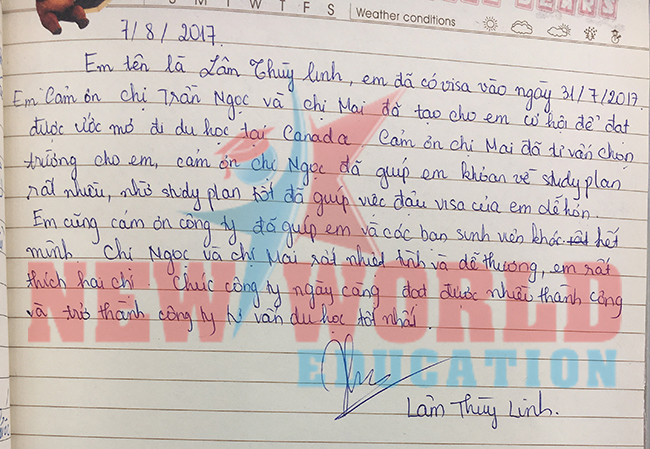 M T W T F S Weather conditions
7/8/2017.
Em tên là Lâm Thùy linh, em đã có visa vào ngày 31/7/2017.
Em cảm ơn chị Trần Ngọc và chị Mai đã tạo cho em cơ hội để đạt
được ước mơ đi du học tại Canada Cảm ơn chị Mai đã tư vấn chọn
trường cho em, cảm ơn chị Ngọc đã giúp em khoản về study plan
rất nhiều, nhờ study plan tốt đã giúp việc đậu visa của em dễ hơn.
Em cũng cảm ơn công ty đã giúp em và các bạn sinh viên khác hết
mình. Chị Ngọc và chị Mai rất nhiệt tình và dễ thương, em rất
thích hai chị. Chúc công ty ngày càng đạt được nhiều thành công
và trở thành công ty tư vấn du học tốt nhất.
NEW WORLD
EDUCATION
Lâm Thùy Linh.